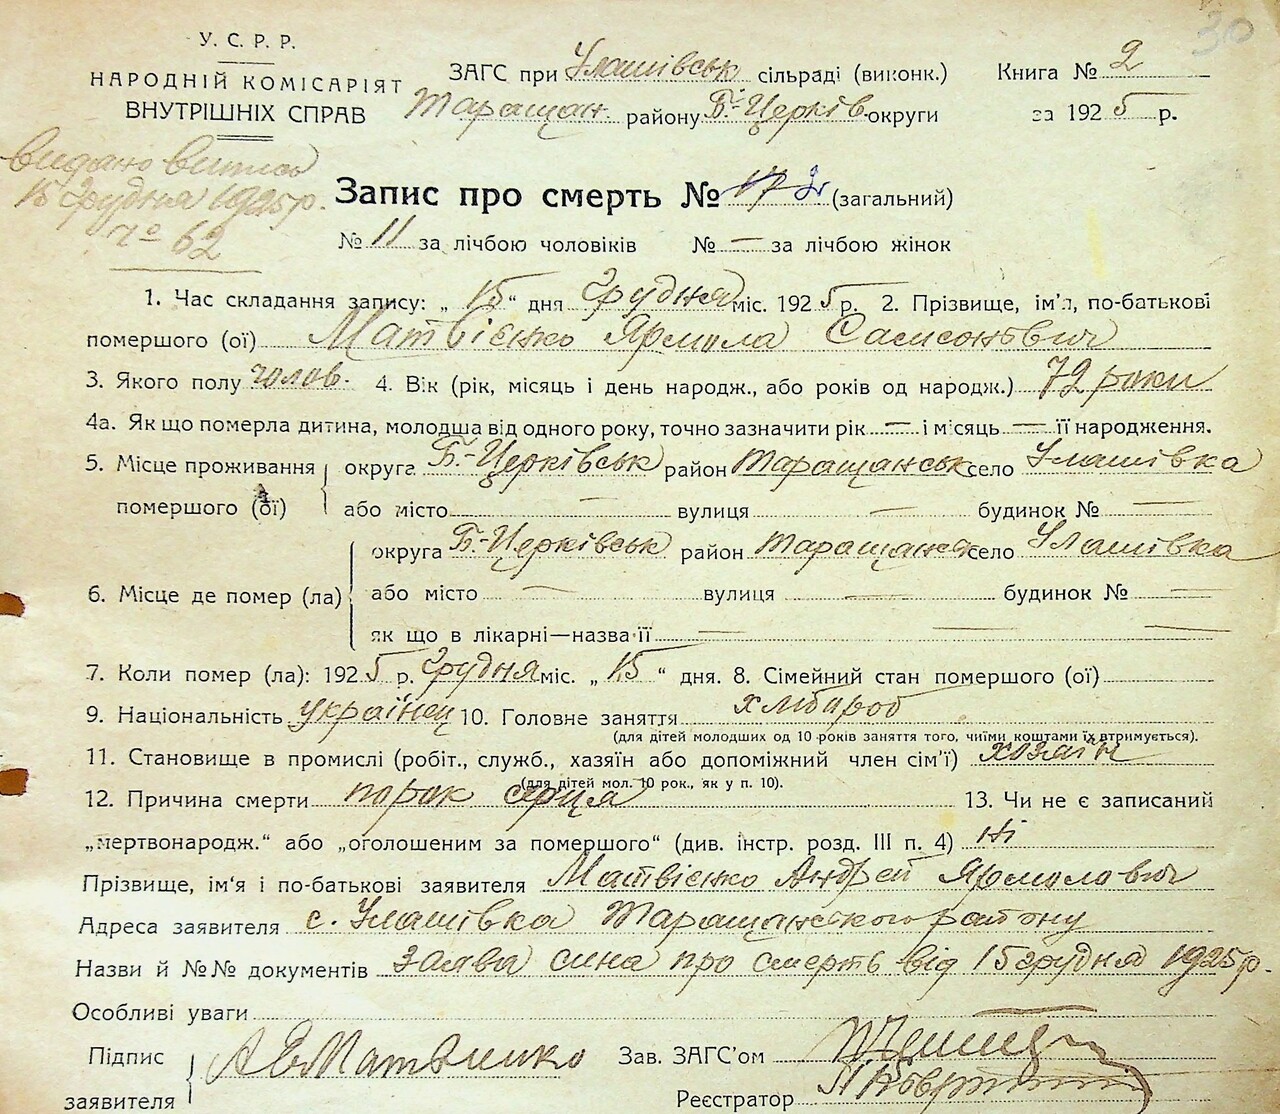 30
У. С. Р. Р.
НАРОДНІЙ КОМІСАРІЯТ
ВНУТРІШНІХ СПРАВ
ЗАГС при Улашівськ сільраді (виконк.) Книга № 2
Таращан. району Б.-Церків. округи за 1925 р.
видано випись
15 Грудня 1925 р.
№ 62
Запис про смерть № 17 (загальний)
№ 11 за лічбою чоловіків № — за лічбою жінок
1. Час складання запису: „ 15 “ дня Грудня міс. 1925 р. 2. Прізвище, ім'я, по-батькові
помершого (ої) Матвієнко Ярмола Самсонович
3. Якого полу чолов. 4. Вік (рік, місяць і день народж., або років од народж.) 72 роки
4а. Як що померла дитина, молодша від одного року, точно зазначити рік — і місяць — її народження.
5. Місце проживання округа Б.-Церківськ район Таращанськ село Улашівка
помершого (ої) або місто — вулиця — будинок № —
округа Б.-Церківськ район Таращанск село Улашівка
6. Місце де помер (ла) або місто — вулиця — будинок № —
як що в лікарні—назва її — — —
7. Коли помер (ла): 1925 р. Грудня міс. „ 15 “ дня. 8. Сімейний стан помершого (ої)
9. Національність українец 10. Головне заняття хлібороб
(для дітей молодших од 10 років заняття того, чиїми коштами їх втримується).
11. Становище в промислі (робіт., служб., хазяїн або допоміжний член сім'ї) хозяїн
(для дітей мол. 10 рок., як у п. 10).
12. Причина смерти порок серця 13. Чи не є записаний
„мертвонародж.“ або „оголошеним за помершого“ (див. інстр. розд. III п. 4) ні
Прізвище, ім'я і по-батькові заявителя Матвієнко Андрей Ярмолович
Адреса заявителя с. Улашівка Таращанского району
Назви й №№ документів заява сина про смерть від 15 грудня 1925 р.
Особливі уваги
Підпис А Е Матвиенко Зав. ЗАГС'ом
заявителя Реєстратор